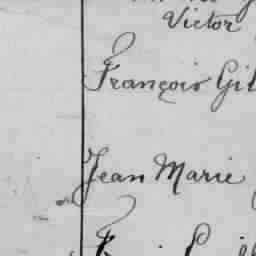 Victor
François Gil
Jean Marie